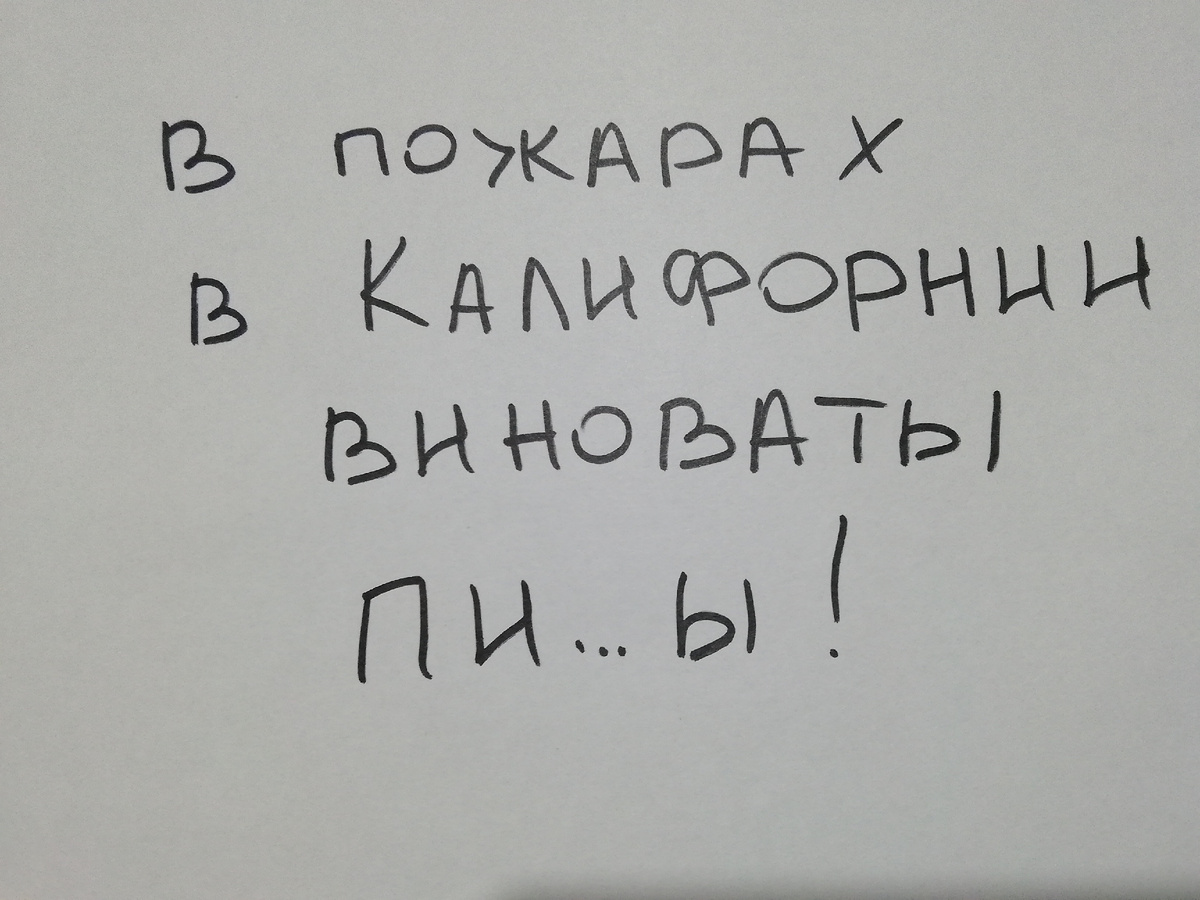 В ПОЖАРАХ
В КАЛИФОРНИИ
ВИНОВАТЫ
ПИ...Ы!